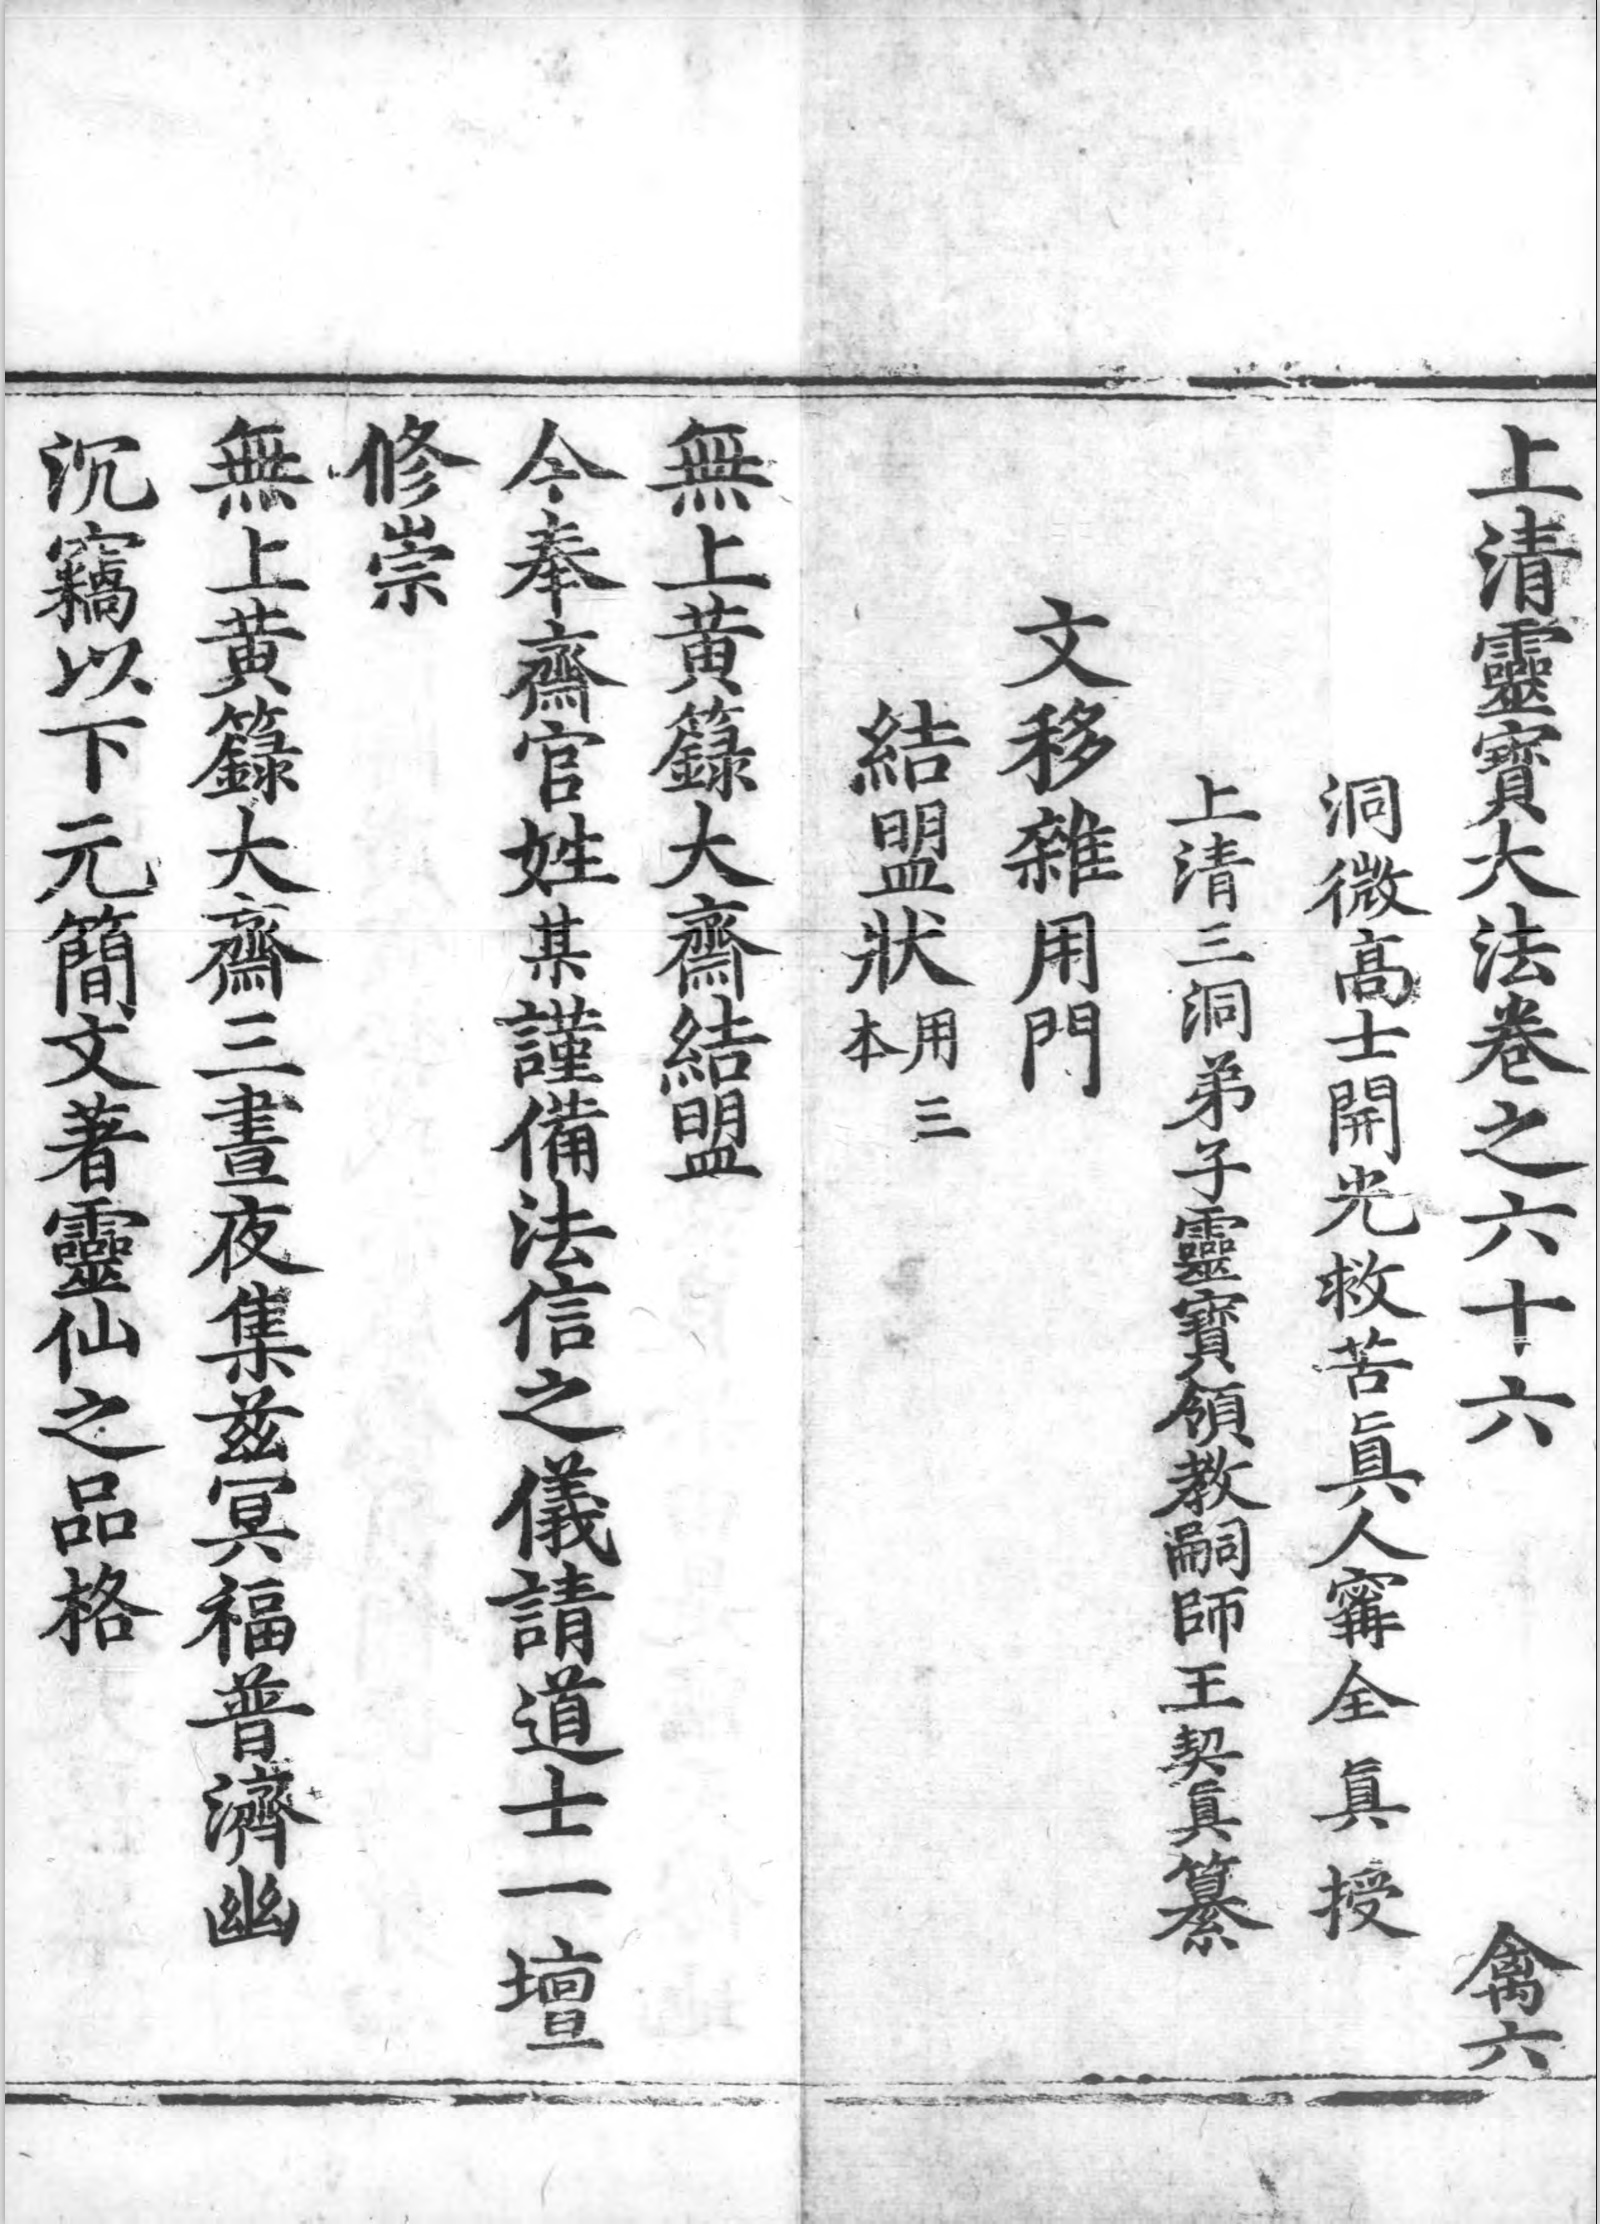 上清靈寶大法卷之六十六 禽六
洞微高士開光救苦眞人寗全眞授
上清三洞弟子靈寶領教嗣師王契眞纂
文移雜用門
結盟狀用三本
無上黃籙大齋結盟
今奉齋官姓某謹備法信之儀請道士一壇
修崇
無上黃籙大齋三晝夜集兹冥福普濟幽
沉竊以下元簡文著靈仙之品格